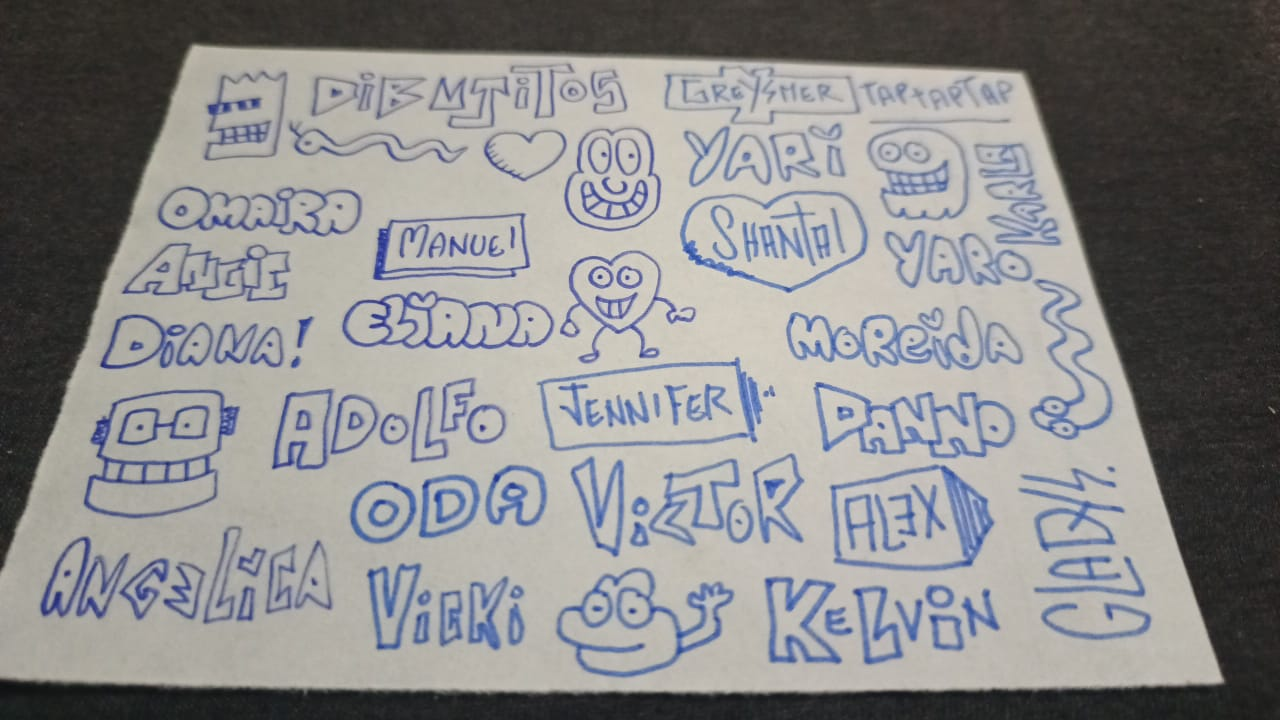 DiBUJiTOS
GREYSMER
TAPTAPTAP
YARi
KARLA
OMAiRA
MANUEl
SHANTAl
ANGIE
YARO
ELiANA
DiANA!
MOREiDA
ADOLFO
JENNIFER
DANNO
ODA
ViCTOR
ALEX
GLADYS
ANGELiCA
ViCKi
KELViN